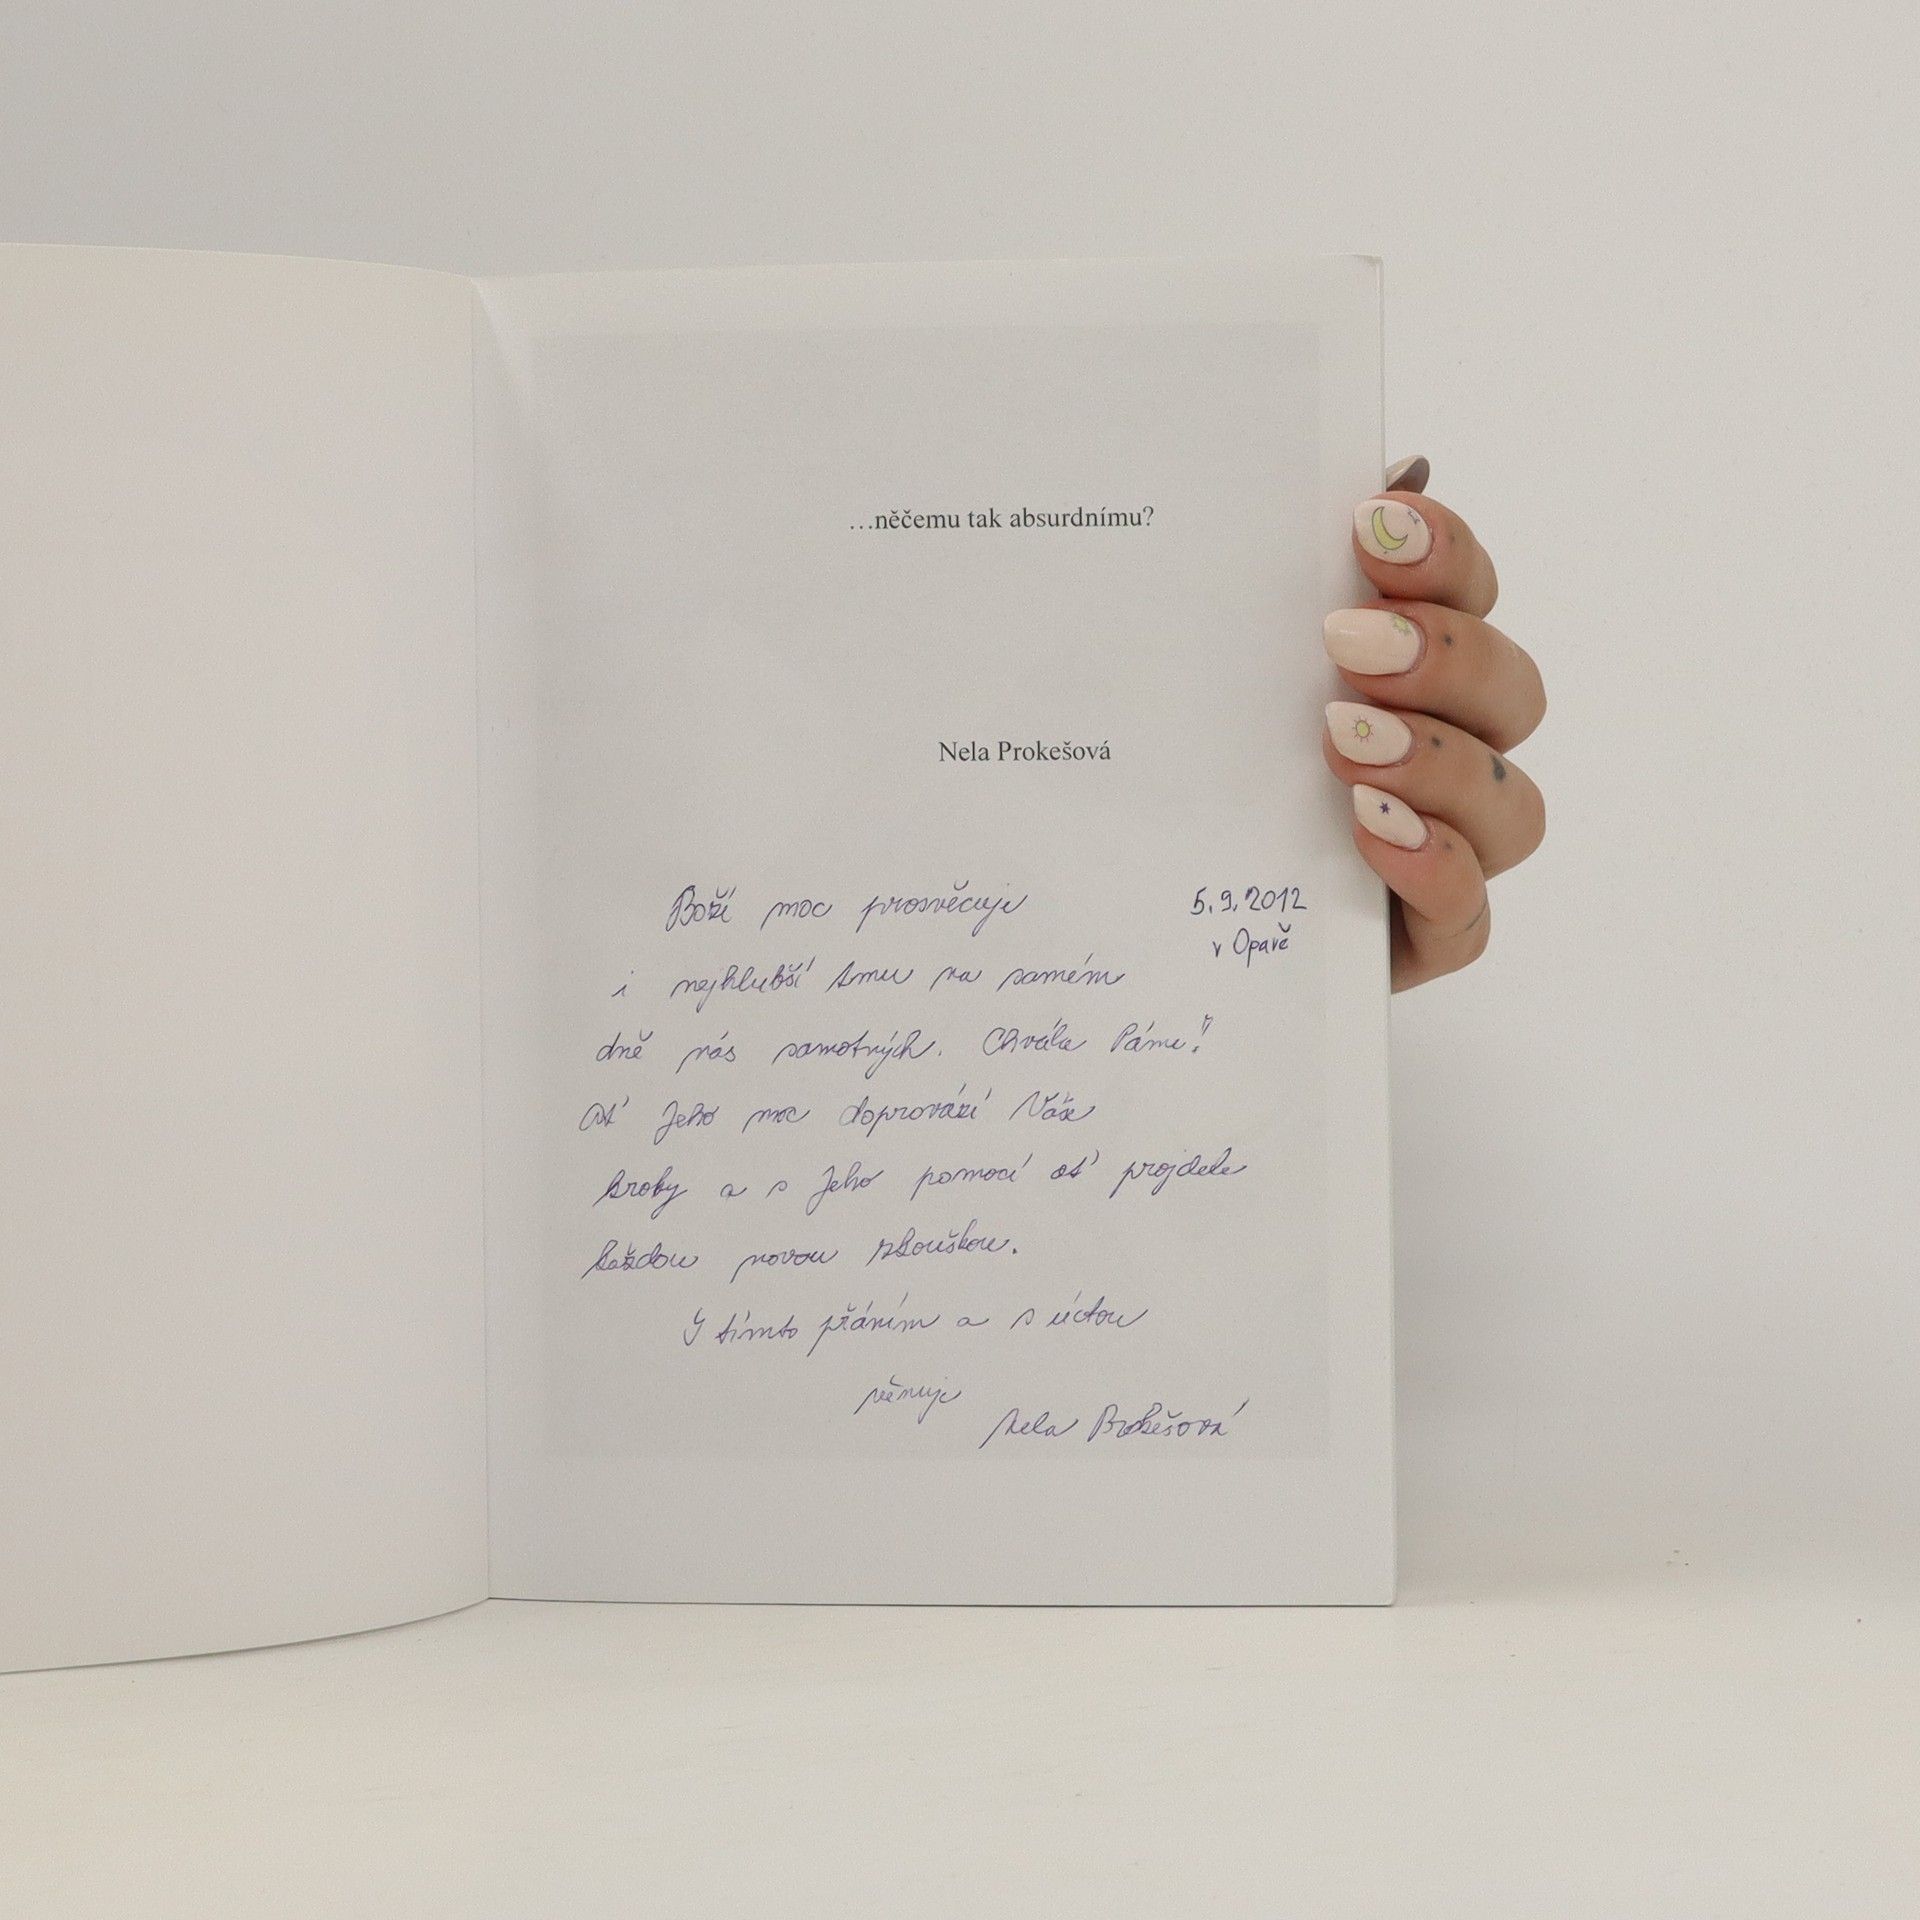 …něčemu tak absurdnímu?
Nela Prokešová
Boží moc prosvěcuje
5.9.2012
v Opavě
i nejhlubší tmu na samém
dně nás samotných. Chvála Pánu!
Ať Jeho moc doprovází Vaše
kroky a s Jeho pomocí ať projdete
každou novou zkouškou.
S tímto přáním a s úctou
věnuje
Nela Prokešová